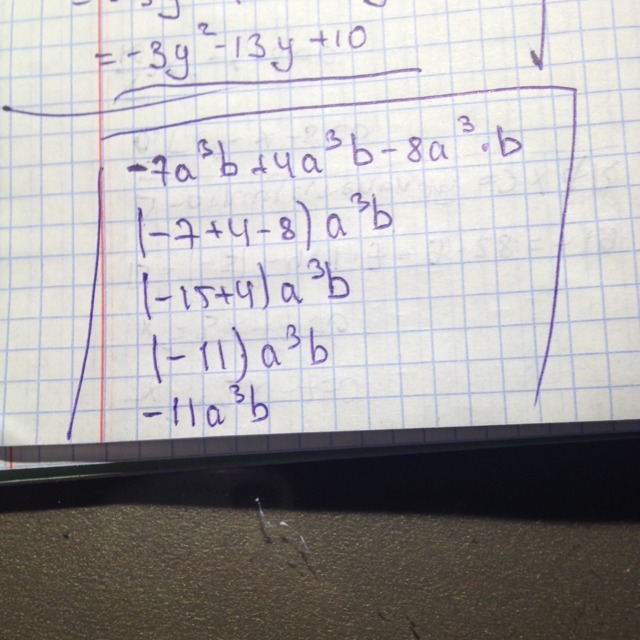 = -3y² - 13y + 10
-7a³b + 4a³b - 8a³·b
(-7+4-8) a³b
(-15+4) a³b
(-11) a³b
-11a³b